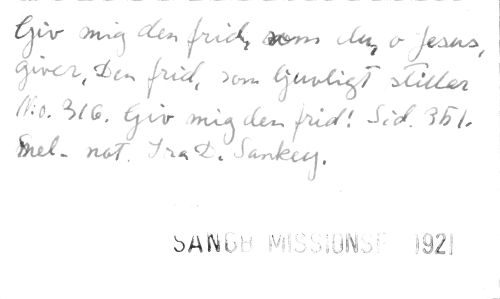 Giv mig den frid, som du, o Jesus,
giver, Den frid, som ljuvligt stillar
No. 316. Giv mig den frid! Sid. 351.
Mel. not. Ira D. Sankey.
SANGB MISSIONSF 1921